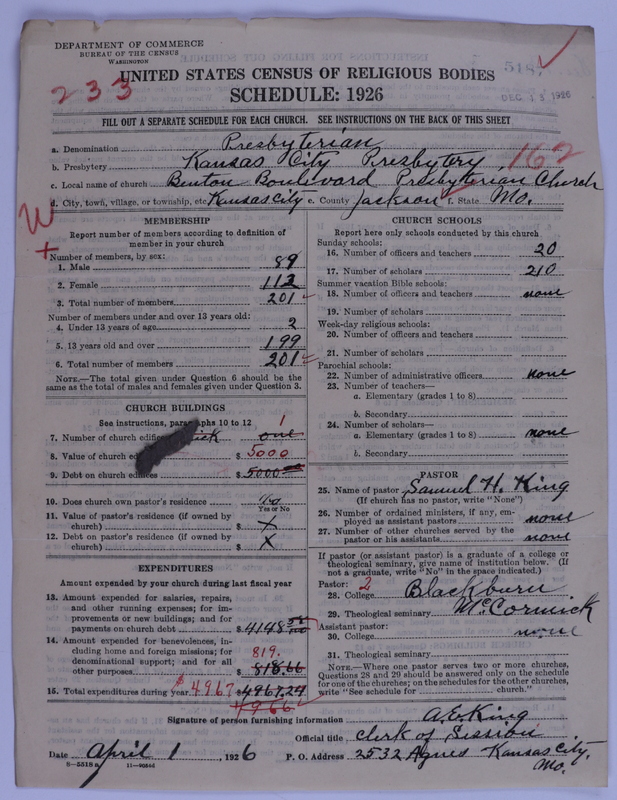 DEPARTMENT OF COMMERCE
BUREAU OF THE CENSUS
WASHINGTON
233
518
DEC 13 1926
UNITED STATES CENSUS OF RELIGIOUS BODIES
SCHEDULE: 1926
FILL OUT A SEPARATE SCHEDULE FOR EACH CHURCH. SEE INSTRUCTIONS ON THE BACK OF THIS SHEET
a. Denomination Presbyterian
b. Presbytery Kansas City Presbytery 162
c. Local name of church Benton Boulevard Presbyterian Church
d. City, town, village, or township, etc Kansas City e. County Jackson f. State Mo.
W
+
MEMBERSHIP
Report number of members according to definition of
member in your church
Number of members, by sex:
1. Male 89
2. Female 112
3. Total number of members 201
Number of members under and over 13 years old:
4. Under 13 years of age 2
5. 13 years old and over 199
6. Total number of members 201
NOTE.—The total given under Question 6 should be the
same as the total of males and females given under Question 3.
CHURCH BUILDINGS
See instructions, paragraphs 10 to 12
7. Number of church edifices one 1
8. Value of church edifices $ 5000
9. Debt on church edifices $ 5000
10. Does church own pastor's residence no
Yes or No
11. Value of pastor's residence (if owned by
church) $ X
12. Debt on pastor's residence (if owned by
church) $ X
EXPENDITURES
Amount expended by your church during last fiscal year
13. Amount expended for salaries, repairs,
and other running expenses; for im-
provements or new buildings; and for
payments on church debt $ 4148
14. Amount expended for benevolences, in-
cluding home and foreign missions; for
denominational support; and for all
other purposes $ 818.66
819.
15. Total expenditures during year $4967 $ 4967.24
4966
CHURCH SCHOOLS
Report here only schools conducted by this church
Sunday schools:
16. Number of officers and teachers 20
17. Number of scholars 210
Summer vacation Bible schools:
18. Number of officers and teachers none
19. Number of scholars
Week-day religious schools:
20. Number of officers and teachers
21. Number of scholars
Parochial schools:
22. Number of administrative officers none
23. Number of teachers—
a. Elementary (grades 1 to 8)
b. Secondary
24. Number of scholars—
a. Elementary (grades 1 to 8) none
b. Secondary
PASTOR
25. Name of pastor Samuel H. King
(If church has no pastor, write "None")
26. Number of ordained ministers, if any, em-
ployed as assistant pastors none
27. Number of other churches served by the
pastor or his assistants none
If pastor (or assistant pastor) is a graduate of a college or
theological seminary, give name of institution below. (If
not a graduate, write "No" in the space indicated.)
Pastor: 2
28. College Blackburn
29. Theological seminary McCormick
Assistant pastor:
30. College none
31. Theological seminary
NOTE.—Where one pastor serves two or more churches,
Questions 28 and 29 should be answered only on the schedule
for one of the churches; on the schedules for the other churches,
write "See schedule for church."
Signature of person furnishing information A. E. King
Official title Clerk of Session
Date April 1, 1926 P. O. Address 2532 Agnes Kansas City,
Mo.
8—5518a